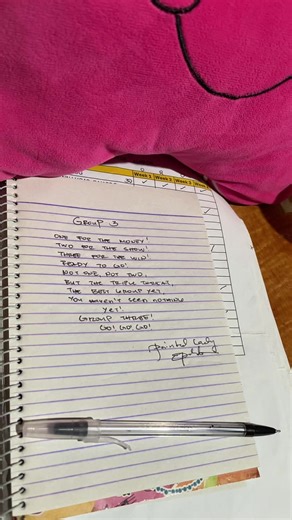 Week 1
GROUP 3
ONE FOR THE MONEY!
TWO FOR THE SHOW!
THREE FOR THE WIN!
READY TO GO!
NOT ONE, NOT TWO,
BUT THE TRIPLE THREAT,
THE BEST GROUP YET
YOU HAVEN'T SEEN NOTHING
YET!
GROUP THREE!
GO! GO! GO!